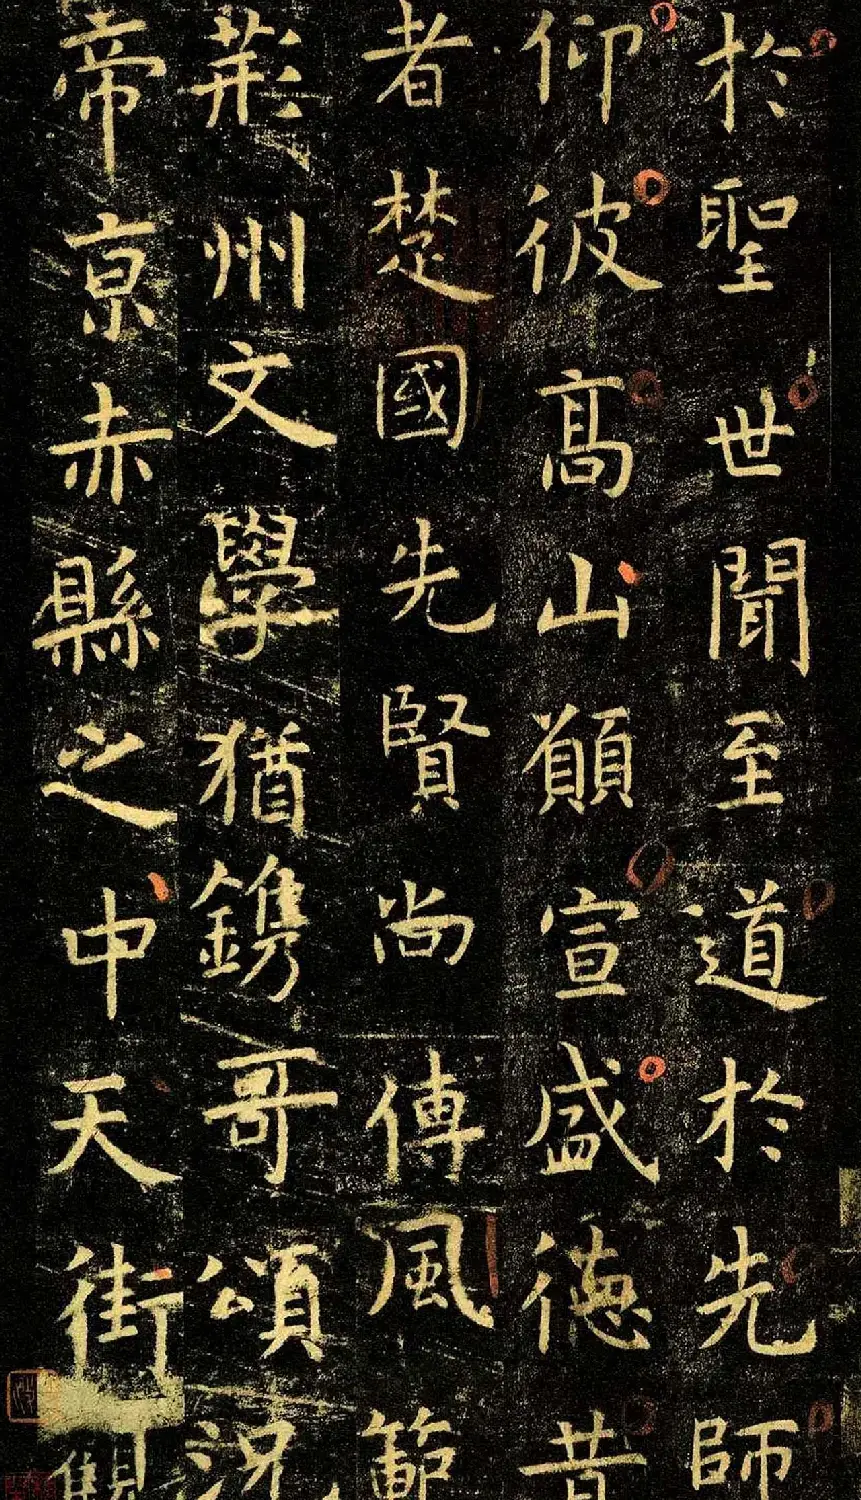 於聖世聞至道於先師
仰彼髙山願宣盛德昔
者楚國先賢尚傳風範
荊州文學猶鐫哥頌況
帝京赤縣之中天街觀